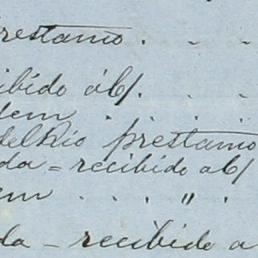 prestamo . - -
recibido á b/. . -
idem . . . .
del Rio prestamo
da = recibido a b/
idem . . . " .
da - recibido a